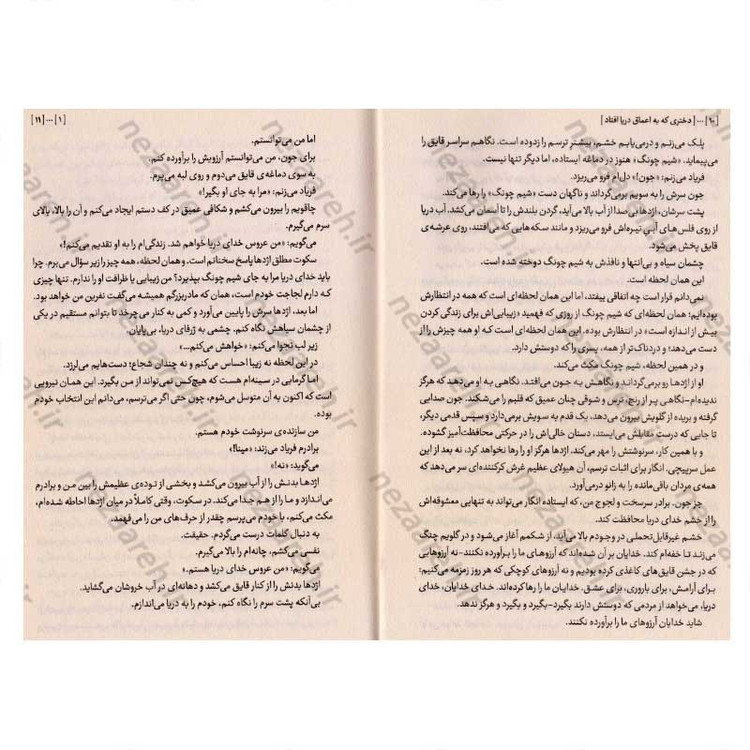 [۱۰] ... [دختری که به اعماق دریا افتاد]
پلک می‌زنم و درمی‌یابم خشم، بیشترِ ترسم را زدوده است. نگاهم سراسر قایق را
می‌پیماید. «شیم چونگ» هنوز در دماغه ایستاده، اما دیگر تنها نیست.
فریاد می‌زنم: «جون!» دل‌ام فرو می‌ریزد.
جون سرش را به سویم برمی‌گرداند و ناگهان دست «شیم چونگ» را رها می‌کند.
پشت سرشان، اژدها بی‌صدا از آب بالا می‌آید، گردن بلندش را تا آسمان می‌کشد. آب دریا
از روی فلس‌های آبی تیره‌اش فرو می‌ریزد و مانند سکه‌هایی که می‌افتند، روی عرشه‌ی
قایق پخش می‌شود.
چشمان سیاه و بی‌انتها و نافذش به شیم چونگ دوخته شده است.
این همان لحظه است.
نمی‌دانم قرار است چه اتفاقی بیفتد، اما این همان لحظه‌ای است که همه در انتظارش
بوده‌ایم؛ همان لحظه‌ای که شیم چونگ از روزی که فهمید «زیبایی‌اش برای زندگی کردن
بیش از اندازه است» در انتظارش بوده. این همان لحظه‌ای است که او همه چیزش را از
دست می‌دهد؛ و دردناک‌تر از همه، پسری را که دوستش دارد.
و در همین لحظه، شیم چونگ مکث می‌کند.
او از اژدها رو برمی‌گرداند و نگاهش به جون می‌افتد. نگاهی به او می‌دهد که هرگز
ندیده‌ام-نگاهی پر از رنج، ترس و شوقی چنان عمیق که قلبم را می‌شکند. جون صدایی
گرفته و بریده از گلویش بیرون می‌دهد، یک قدم به سویش برمی‌دارد و سپس قدمی دیگر،
تا جایی که درستِ مقابلش می‌ایستد، دستان خالی‌اش را در حرکتی محافظت‌آمیز گشوده.
و با همین کار، سرنوشتش را مهر می‌کند. اژدها هرگز او را رها نخواهد کرد، نه بعد از این
عمل سرپیچی. انگار برای اثبات ترسم، آن هیولای عظیم غرش کرکننده‌ای سر می‌دهد که
همه‌ی مردان باقی‌مانده را به زانو درمی‌آورد.
جز جون. برادر سرسخت و لجوج من، که ایستاده انگار می‌تواند به تنهایی معشوقه‌اش
را از خشم خدای دریا محافظت کند.
خشم غیرقابل‌تحملی در وجودم بالا می‌آید، از شکمم آغاز می‌شود و در گلویم چنگ
می‌زند تا خفه‌ام کند. خدایان بر آن شده‌اند که آرزوهای ما را برآورده نکنند-نه آرزوهایی
که در جشن قایق‌های کاغذی کرده بودیم و نه آرزوهای کوچکی که هر روز زمزمه می‌کنیم:
برای آرامش، برای باروری، برای عشق. خدایان ما را رها کرده‌اند. خدای خدایان، خدای
دریا، می‌خواهد از مردمی که دوستش دارند بگیرد-بگیرد و بگیرد و هرگز ندهد.
شاید خدایان آرزوهای ما را برآورده نکنند.
[۱] ... [۱۱]
اما من می‌توانستم.
برای جون، من می‌توانستم آرزویش را برآورده کنم.
به سوی دماغه‌ی قایق می‌دوم و روی لبه می‌پرم.
فریاد می‌زنم: «مرا به جای او بگیر!»
چاقویم را بیرون می‌کشم و شکافی عمیق در کف دستم ایجاد می‌کنم و آن را بالا، بالای
سرم می‌گیرم.
می‌گویم: «من عروس خدای دریا خواهم شد. زندگی‌ام را به او تقدیم می‌کنم!»
سکوت مطلق اژدها پاسخ سخنانم است، و همان لحظه، همه چیز را زیر سؤال می‌برم. چرا
باید خدای دریا مرا به جای شیم چونگ بپذیرد؟ من زیبایی یا ظرافت او را ندارم. تنها چیزی
که دارم لجاجت خودم است، همان که مادربزرگم همیشه می‌گفت نفرین من خواهد بود.
اما بعد، اژدها سرش را پایین می‌آورد و کمی به کنار می‌چرخد تا بتوانم مستقیم در یکی
از چشمان سیاهش نگاه کنم. چشمی به ژرفای دریا، بی‌پایان.
زیر لب نجوا می‌کنم: «خواهش می‌کنم...»
در این لحظه نه زیبا احساس می‌کنم و نه چندان شجاع؛ دست‌هایم می‌لرزد.
اما گرمایی در سینه‌ام هست که هیچ‌کس نمی‌تواند از من بگیرد. این همان نیرویی
است که اکنون به آن متوسل می‌شوم، چون حتی اگر می‌ترسم، می‌دانم این انتخاب خودم
بوده.
من سازنده‌ی سرنوشت خودم هستم.
برادرم فریاد می‌زند: «مینا!»
می‌گوید: «نه!»
اژدها بدنش را از آب بیرون می‌کشد و بخشی از توده‌ی عظیمش را بین من و برادرم
می‌اندازد و ما را از هم جدا می‌کند. در سکوت، وقتی کاملاً در میان اژدها احاطه شده‌ام،
مکث می‌کنم، با خودم می‌پرسم چقدر از حرف‌های من را می‌فهمد.
به دنبال کلمات درست می‌گردم. حقیقت.
نفسی می‌کشم، چانه‌ام را بالا می‌گیرم.
می‌گویم: «من عروس خدای دریا هستم.»
اژدها بدنش را از کنار قایق می‌کشد و دهانه‌ای در آب خروشان می‌گشاید.
بی‌آنکه پشت سرم را نگاه کنم، خودم را به دریا می‌اندازم.
nezaareh.ir